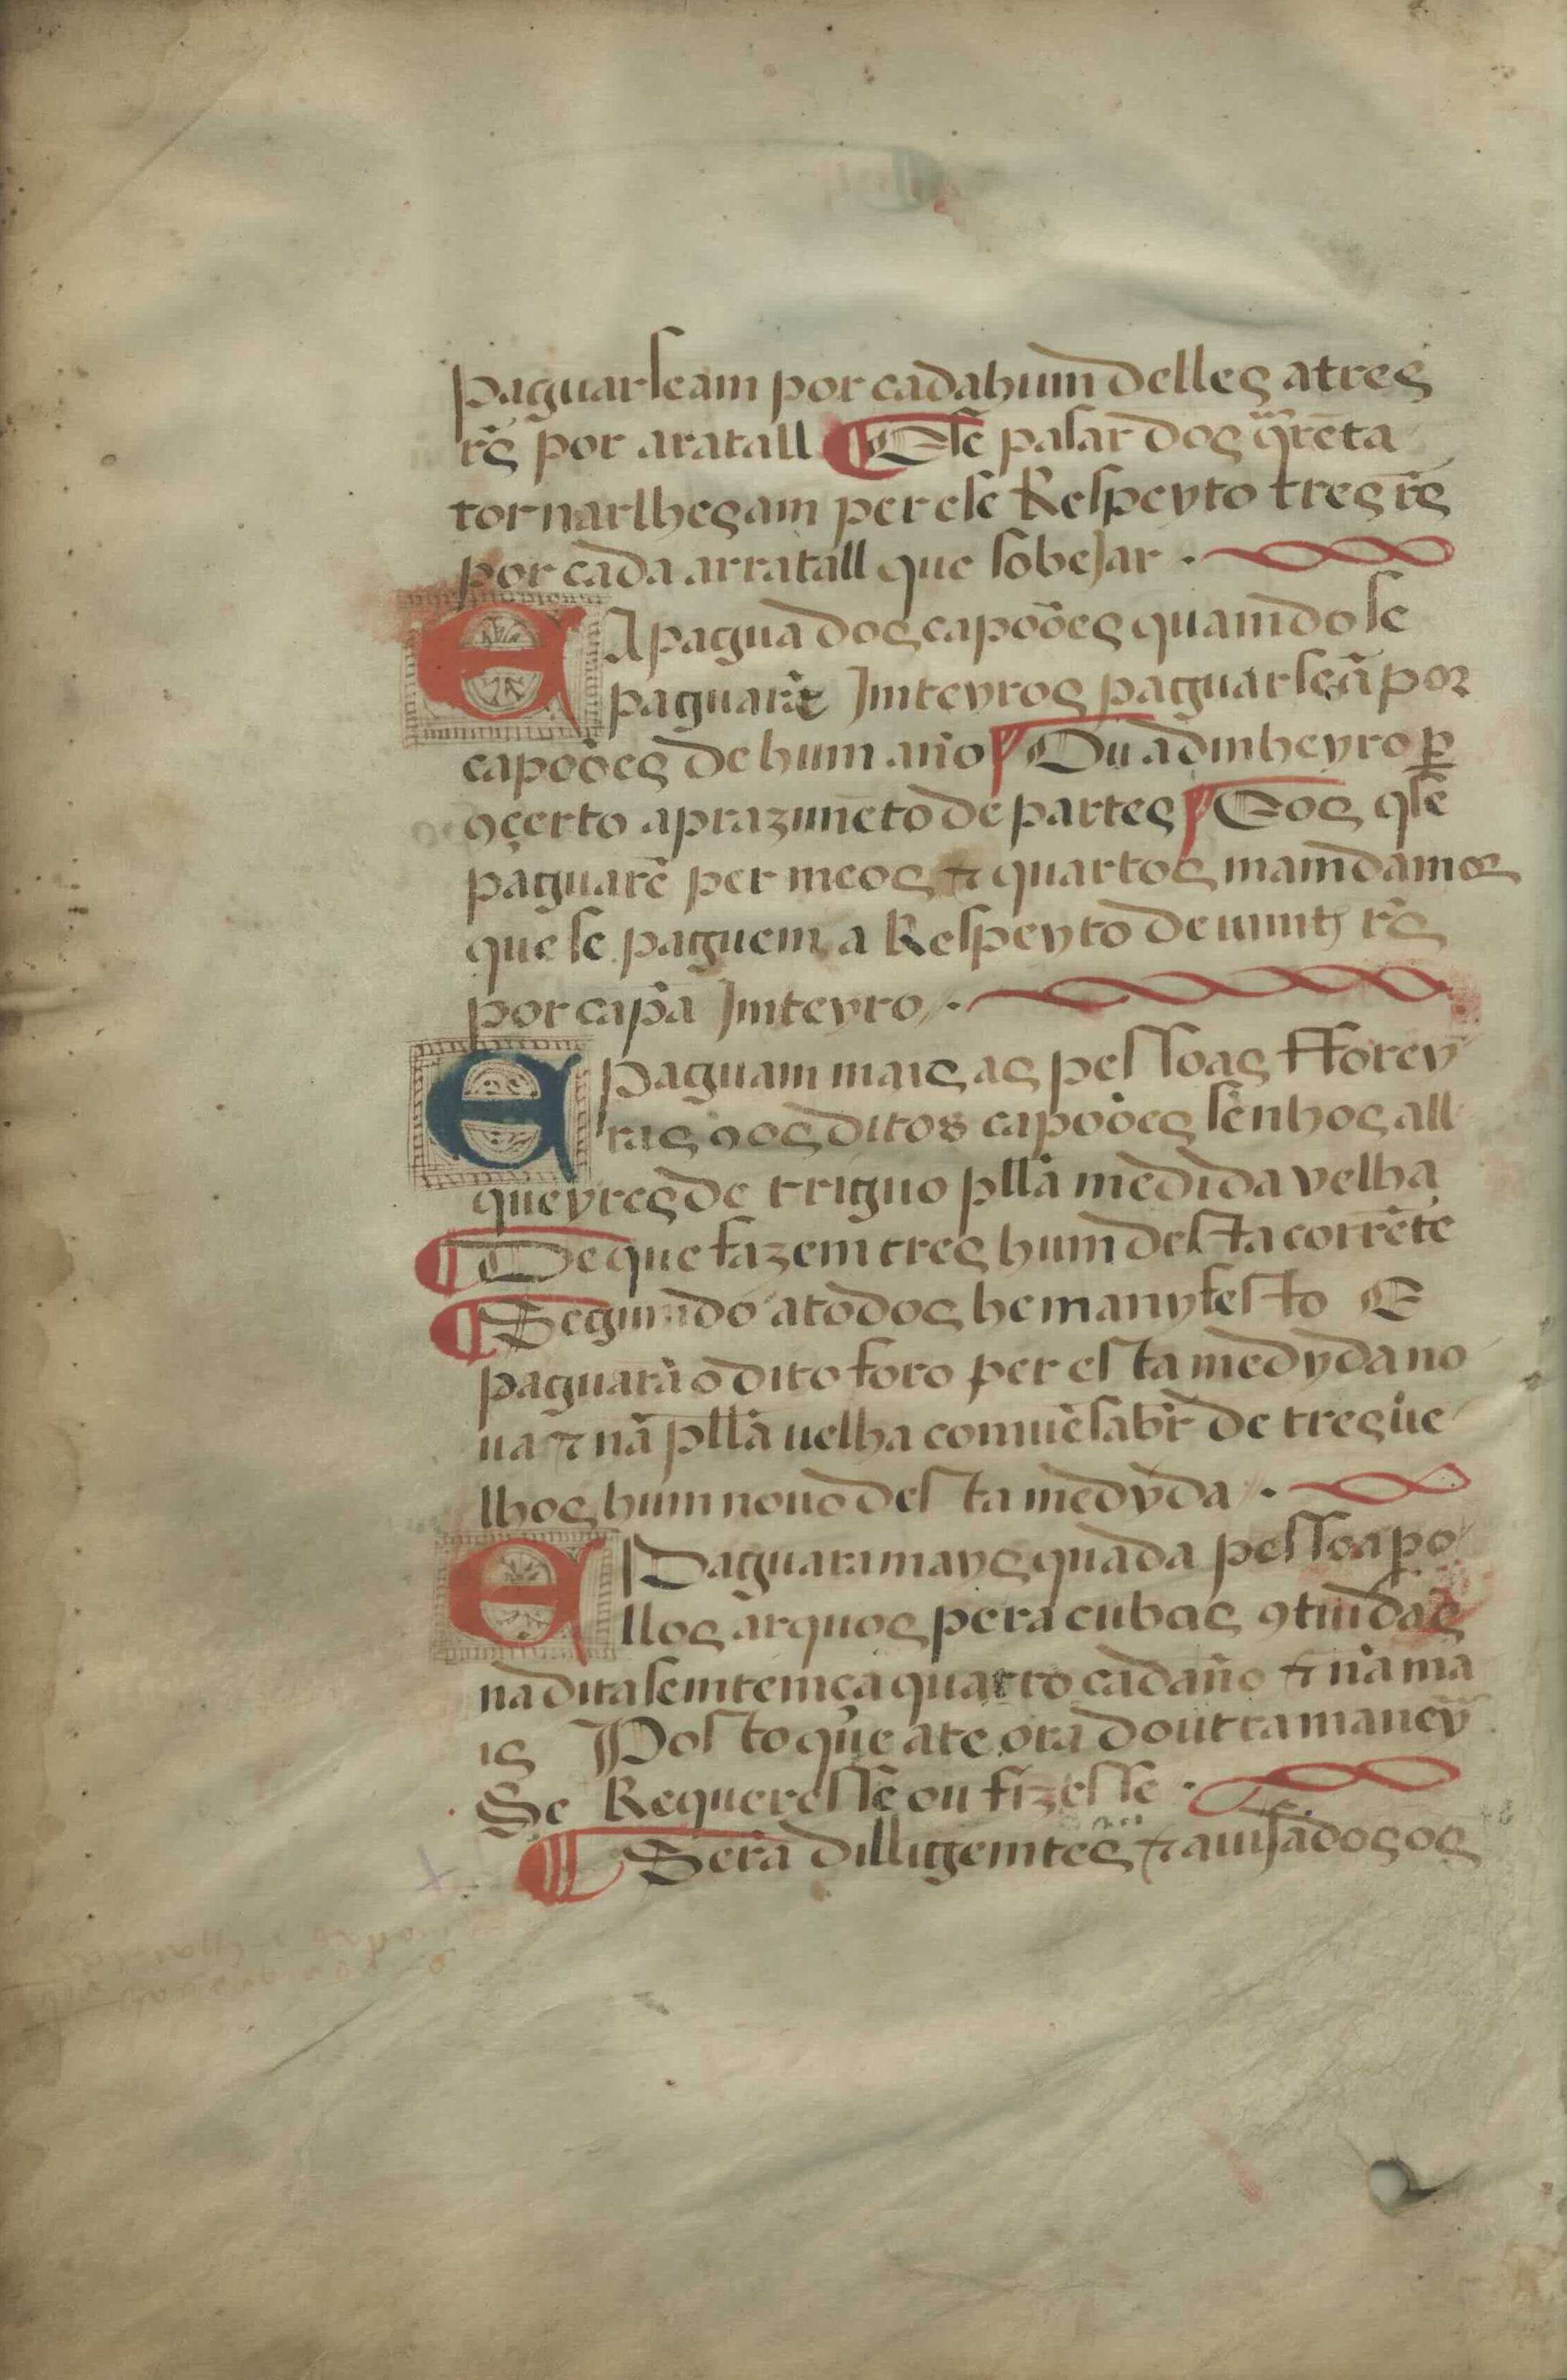 paguarseam por cadahum delles a tres
rs̃ por aratall ¶ E se pasar dos qͣrẽta
tornarlhesam per ese Respeyto tres rs̃
por cada arratall que sobejar .
E A pagua dos capoões quamdo se
paguarẽ Jmteyros paguarseã por
capoões de hum año ¶ Ou a dinheyro ꝑ
ꝯçerto aprazimẽto de partes ¶ E os q̃ se
paguarẽ per meos ⁊ quartos mamdamos
que se paguem a Respeyto de vimte rs̃
por capã Jmteyro .
E paguam mais as pessoas fforey
ras ꝯ os ditos capoões senhos all
queyres de triguo pllã medida velha
¶ De que fazem tres hum desta corrẽte
¶ Segumdo a todos he manyfesto E
paguarã o dito foro per esta medyda no
ua ⁊ nã pllã uelha comuẽ sabr̃ de tres ue
lhos hum nouo desta medyda .
E Paguara mays quada pessoa po
llos arquos pera cubas ꝯtiudas
na dita semtemça quatro cadaño ⁊ nã ma
is Posto que ate ora doutra maneyͣ
Se Requeresse ou fizesse .
¶ Serã dilligemtes ⁊ auisados os